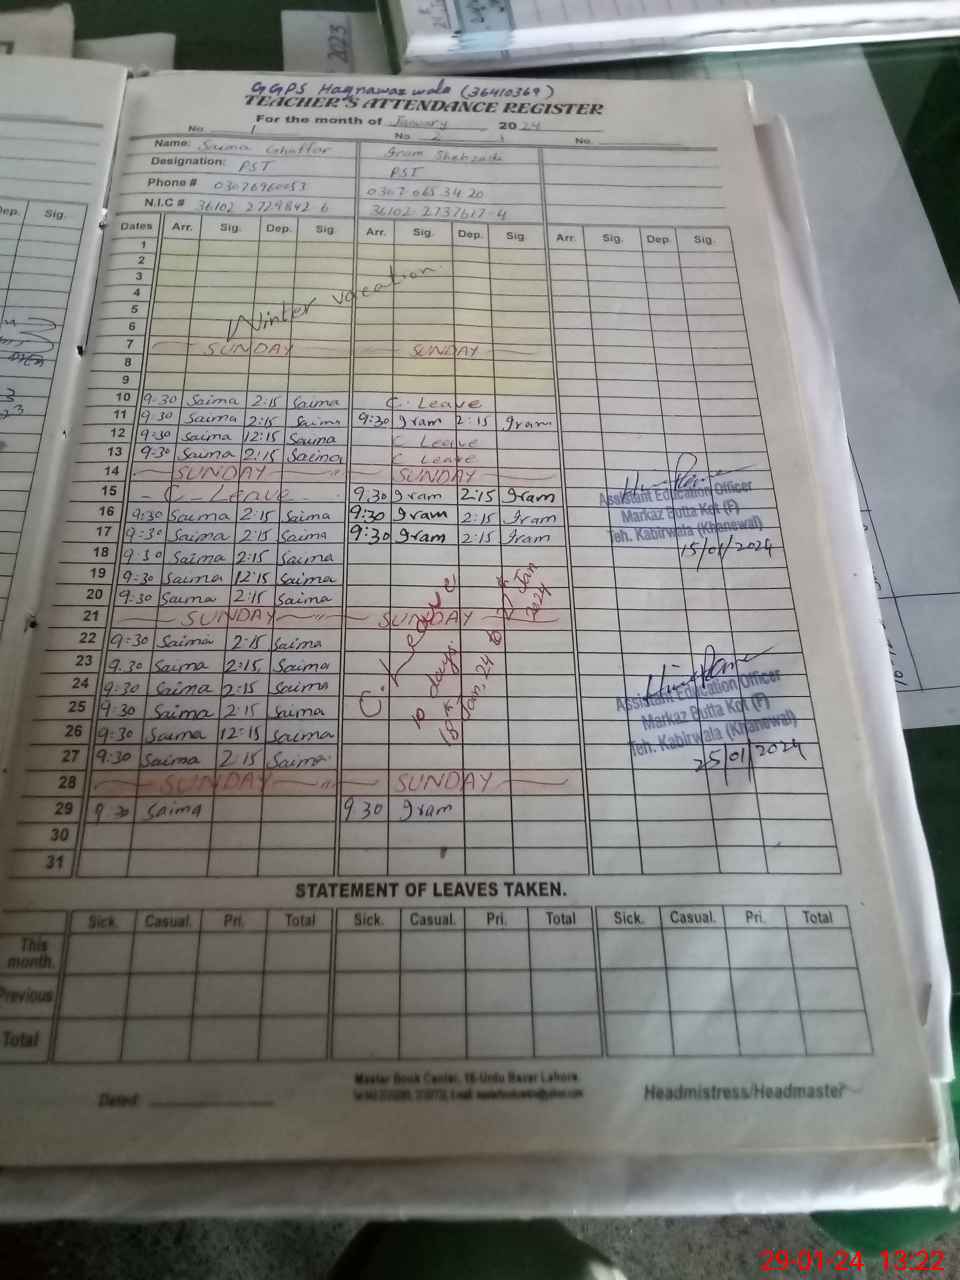 2023
GGPS Haqnawaz wala (36410369)
TEACHER'S ATTENDANCE REGISTER
For the month of January 2024
No. 1 No. 2 No.
Name: Saima Ghaffar Iram Shehzadi
Designation: PST PST
Phone # 03076960053 0307 065 34 20
N.I.C # 36102 2729842 6 36102 2737617-4
Dep. Sig.
Dates Arr. Sig. Dep. Sig. Arr. Sig. Dep. Sig. Arr. Sig. Dep. Sig.
1
2
3
4
5
6
Winter vacation.
7 SUNDAY SUNDAY
8
9
10 9:30 Saima 2:15 Saima C. Leave
11 9:30 Saima 2:15 Saima 9:30 Iram 2:15 Iram
12 9:30 Saima 12:15 Saima C Leave
13 9:30 Saima 2:15 Saima C Leave
14 SUNDAY SUNDAY
15 - C - Leave 9.30 Iram 2:15 Iram
16 9:30 Saima 2:15 Saima 9:30 Iram 2:15 Iram
17 9:30 Saima 2:15 Saima 9:30 Iram 2:15 Iram
Assistant Education Officer
Markaz Butta Kot (F)
Teh. Kabirwala (Khanewal)
15/01/2024
18 9:30 Saima 2:15 Saima
19 9:30 Saima 12:15 Saima
20 9:30 Saima 2:15 Saima
21 SUNDAY SUNDAY
22 9:30 Saima 2:15 Saima
23 9.30 Saima 2:15 Saima
24 9:30 Saima 2:15 Saima
25 9:30 Saima 2:15 Saima
26 9:30 Saima 12:15 Saima
27 9:30 Saima 2:15 Saima
C. Leave
10 days
18th Jan, 24 to 27th Jan
2024
Assistant Education Officer
Markaz Butta Kot (F)
Teh. Kabirwala (Khanewal)
25/01/2024
28 SUNDAY SUNDAY
29 9:30 Saima 9.30 Iram
30
31
STATEMENT OF LEAVES TAKEN.
Sick. Casual. Pri. Total Sick. Casual. Pri. Total Sick. Casual. Pri. Total
This month.
Previous
Total
Master Book Center, 18-Urdu Bazar Lahore.
Dated Headmistress/Headmaster
29-01-24 13:22